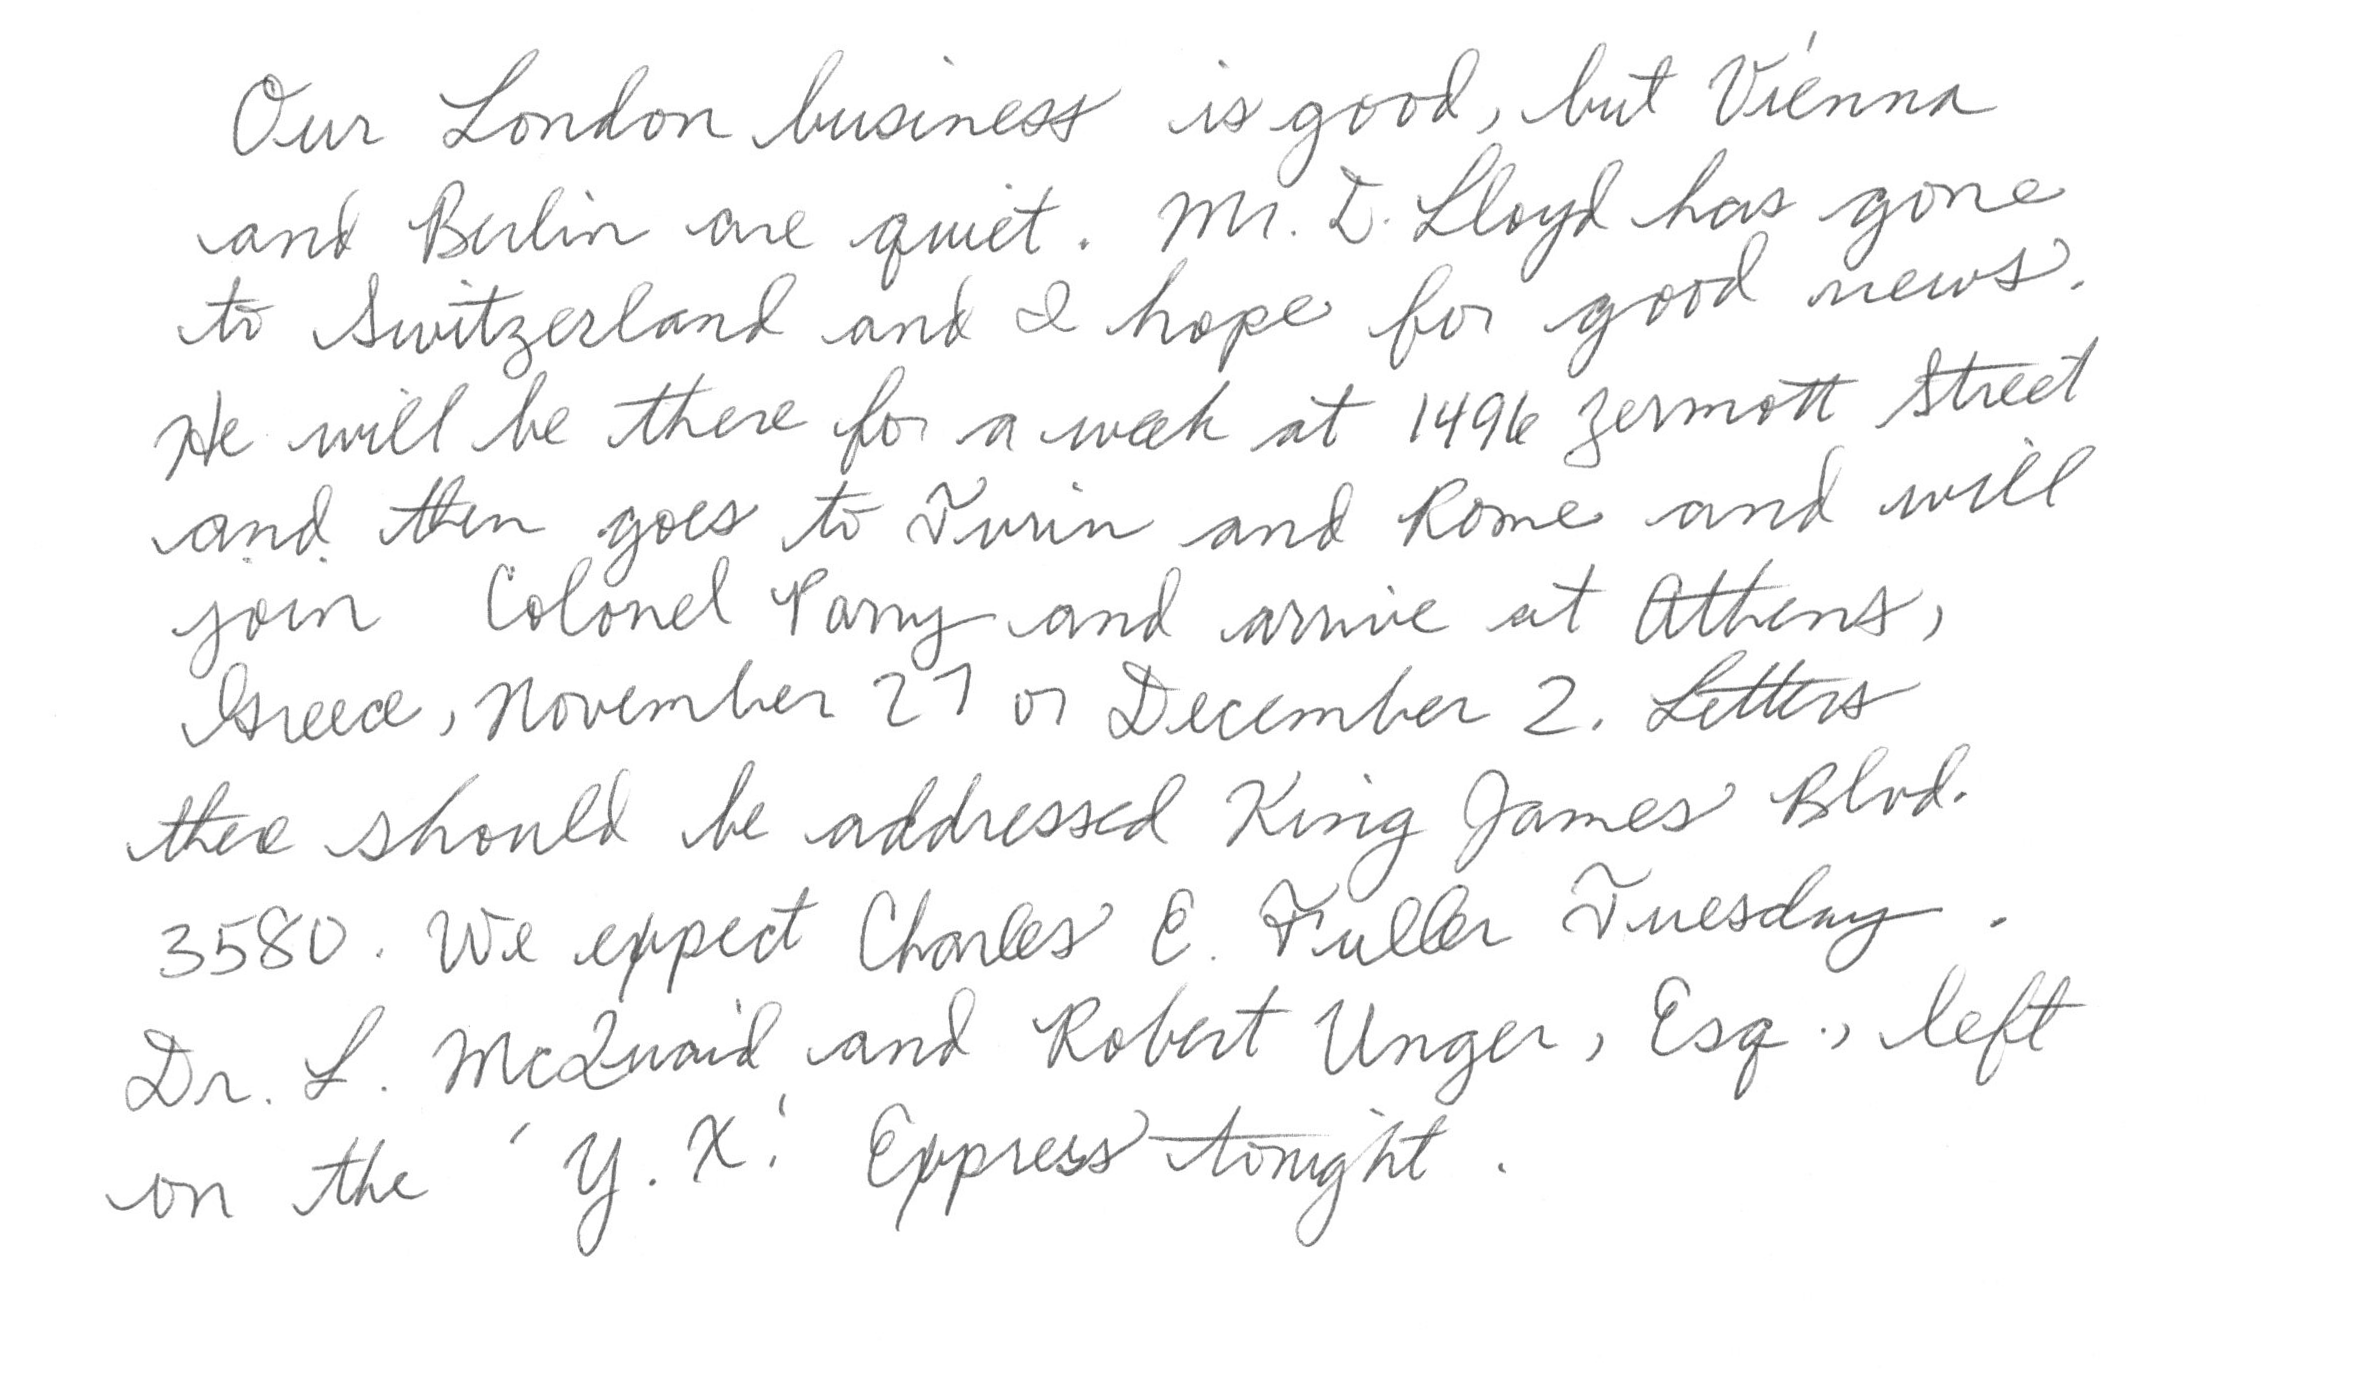 Our London business is good, but Vienna
and Berlin are quiet. Mr. D. Lloyd has gone
to Switzerland and I hope for good news.
He will be there for a week at 1496 Zermott Street
and then goes to Turin and Rome and will
join Colonel Parry and arrive at Athens,
Greece, November 27 or December 2. Letters
there should be addressed King James Blvd.
3580. We expect Charles E. Fuller Tuesday.
Dr. L. McQuaid and Robert Unger, Esq., left
on the 'Y. X.' Express tonight.